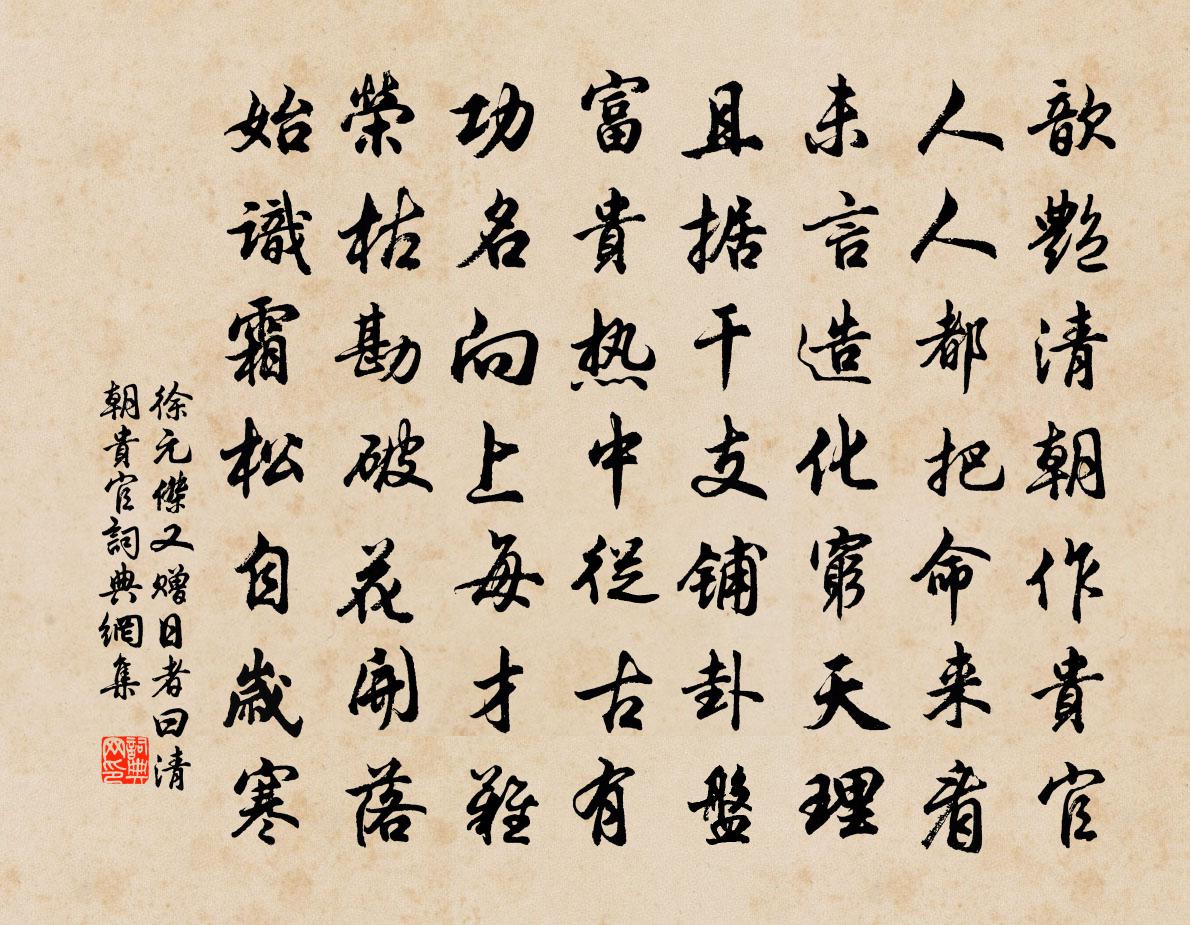 歆艷清朝作貴官
人人都把命来看
未言造化窮天理
且据干支铺卦盤
富貴热中從古有
功名向上每才難
榮枯勘破花開落
始識霜松自歲寒
徐元傑又赠日者曰清
朝貴官詞典網集
詞典网印